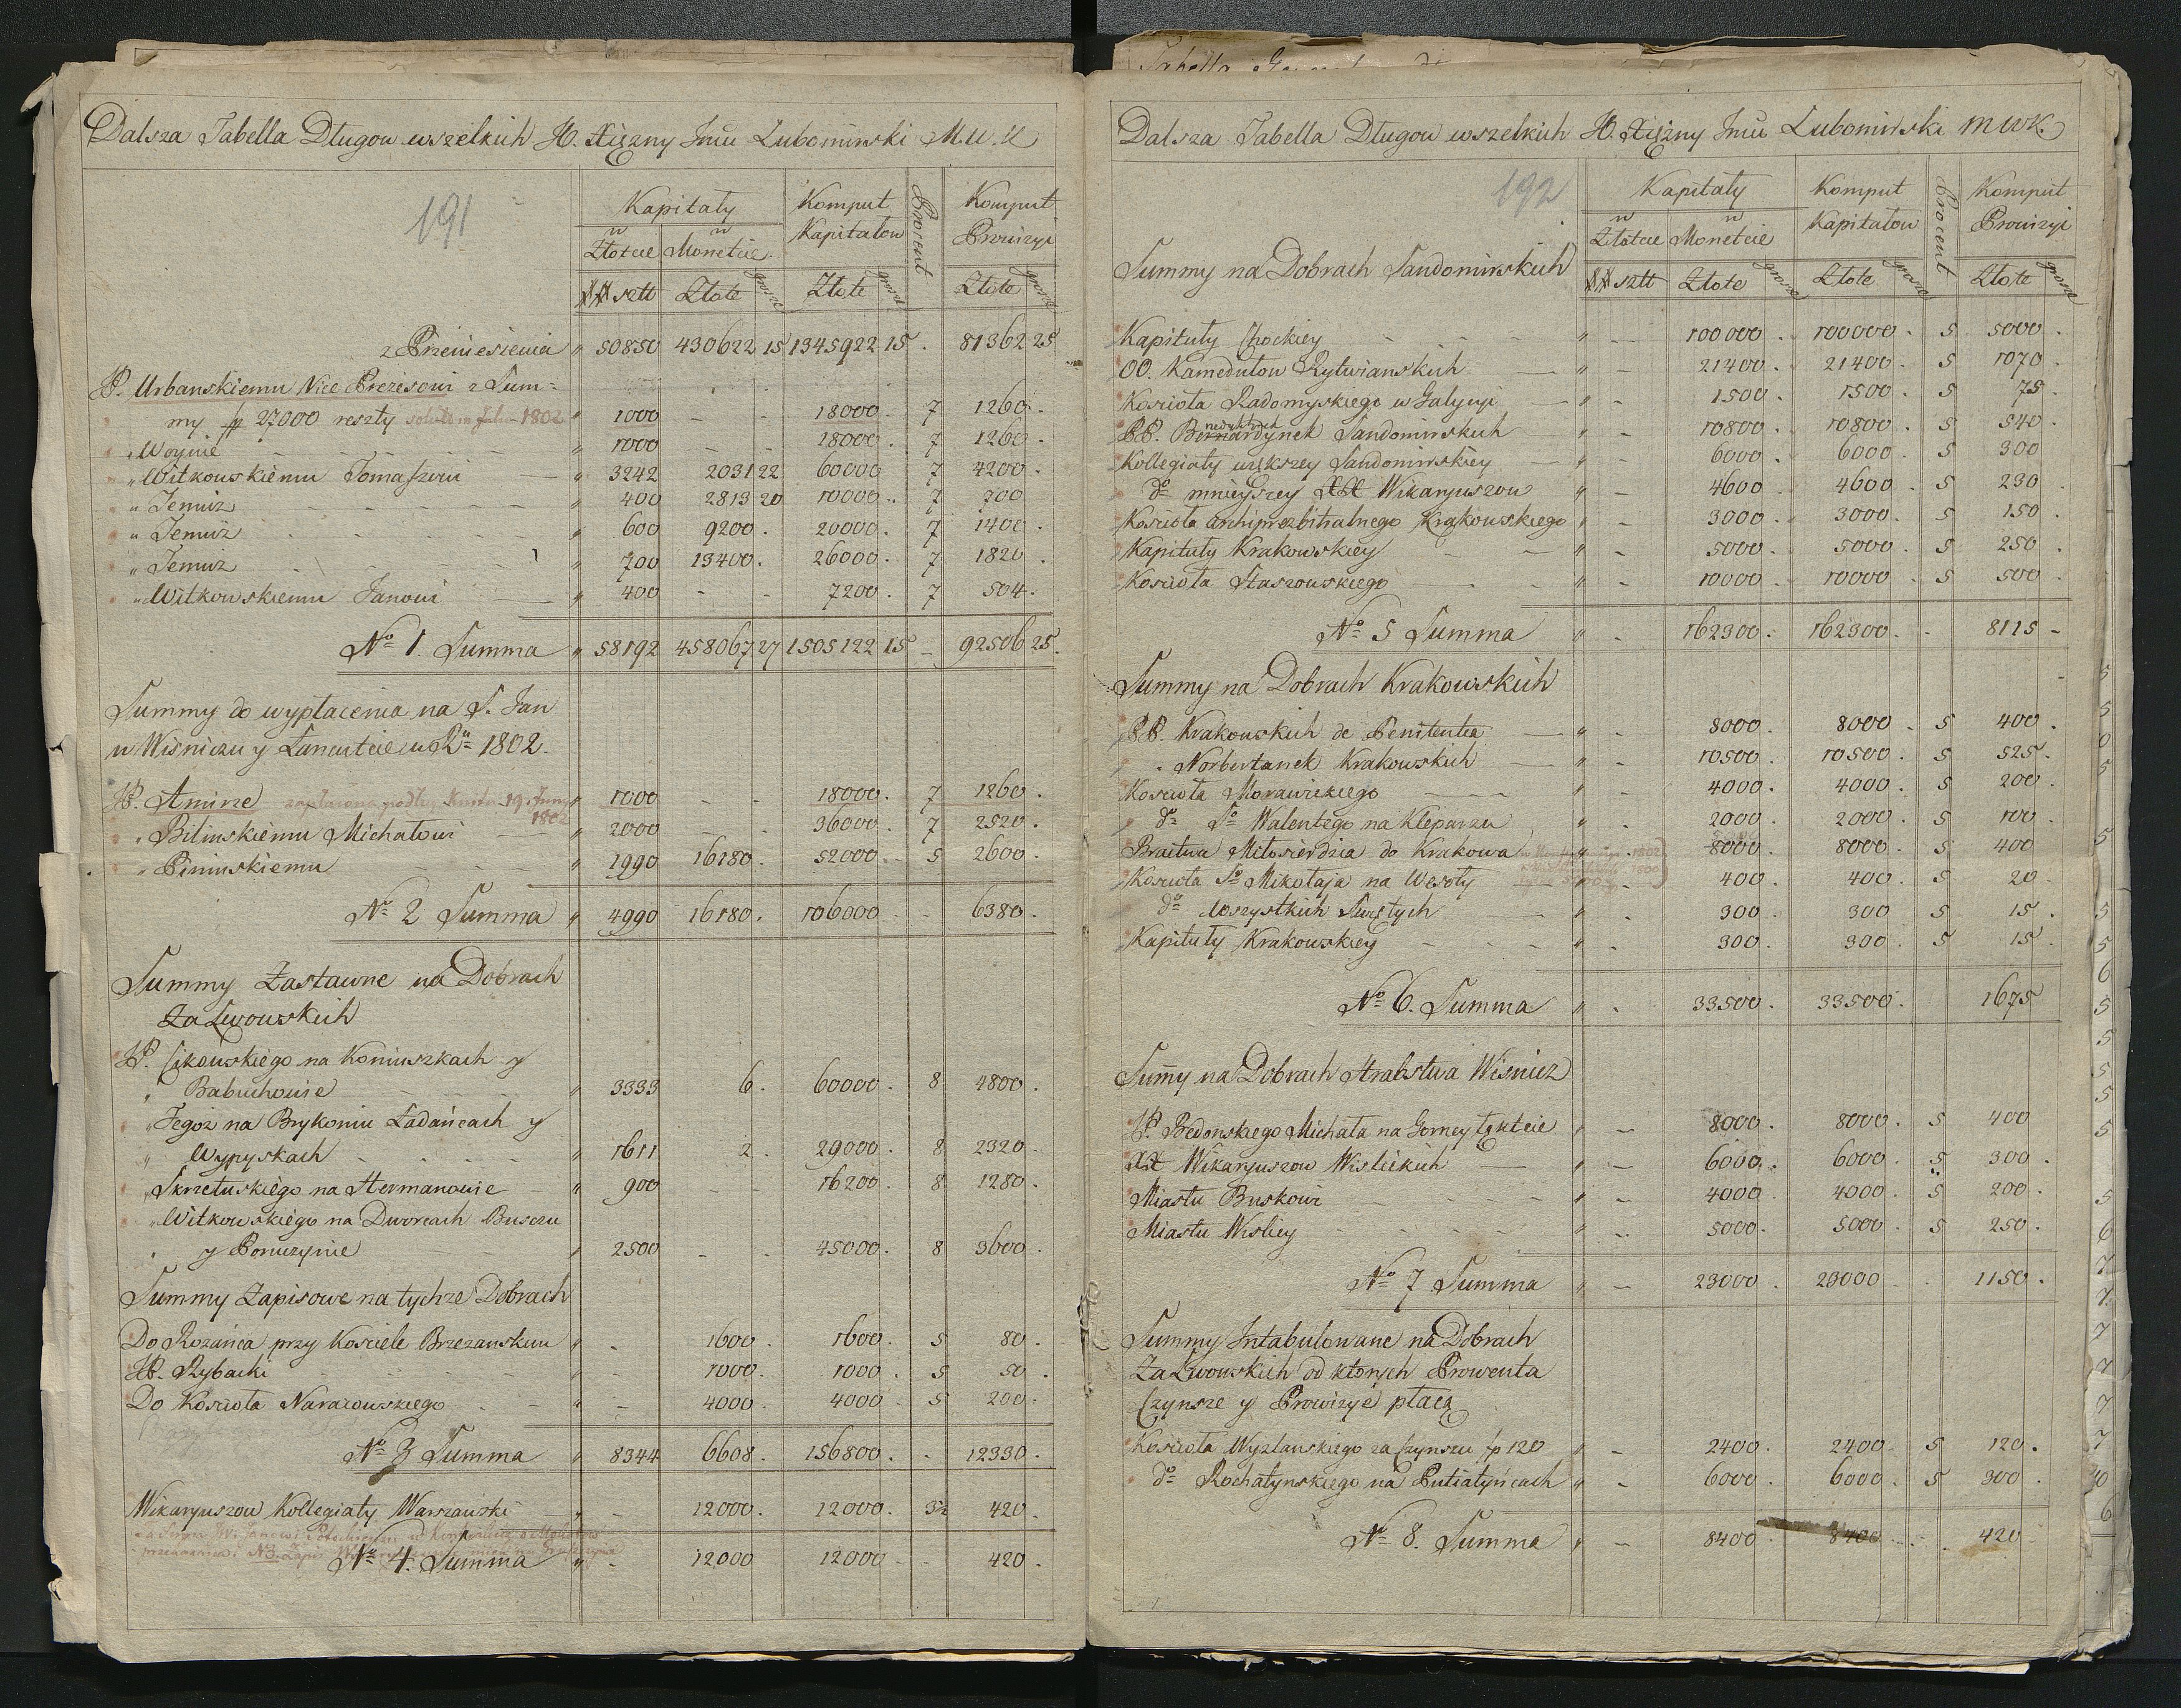 Dalsza Tabella Długow wszelkich H. Xięzny Jmći Lubomirski M.W.K
191
Kapitały Komput Kapitałow Procent Komput Prowizyi
w Złotcie w Monetcie
## sztt Złote grosze Złote grosze Złote grosze
z Przeniesienia " 50850 430622 15 1345922 15 . 81362 25
P. Urbanskiemu Vice Prezesowi z Sum=
my # 27000 reszty 1802 " 1000 - - 18000. 7 1260.
" Woynie " 1000 - - 18000. 7 1260.
" Witkowskiemu Tomaszowi " 3242 2031 22 60000 7 4200.
" Temuz " 400 2813 20 10000. 7 700
" Temuz " 600 9200. 20000. 7 1400.
" Temuz " 700 13400. 26000. 7 1820.
" Witkowskiemu Janowi " 400 - - 7200. 7 504.
No 1. Summa " 58192 458067 27 1505122 15 - 92506 25.
Summy do wypłacenia na S. Jan
w Wisniczu y Łancutcie w Ru 1802.
JP. Amirze zapłacono podług 19 Juny 1802 1000 - - 18000. 7 1260.
" Bilinskiemu Michałowi " 2000 - - 36000. 7 2520.
" Pininskiemu " 1990 16180. 52000. 5 2600.
No 2 Summa " 4990 16180. 106000 - - 6380.
Summy Zastawne na Dobrach
Za Lwowskich
JP. Cikowskiego na Koniuszkach y
" Babuchowie " 3333 6. 60000. 8 4800.
" Tegoz na Brykoniu Ładańcach y
" Wypyskach " 1611 2. 29000. 8 2320.
" Skrzetuskiego na Hermanowie " 900 - - 16200. 8 1280.
" Witkowskiego na Dworcach Busczu
" y Poruzynie " 2500 - - 45000. 8 3600.
Summy Zapisowe na tychze Dobrach
Do Rozańca przy Kosciele Brzezanskim " - 1600. 1600. 5 80.
JP. Rybacki " - 1000. 1000. 5 50.
Do Koscioła Narajowskiego " - 4000. 4000 5 200.
No 3 Summa " 8344 6608. 156800. - 12330.
Wikaryuszow Kollegiaty Warszawski " - 12000. 12000. 3½ 420.
No 4. Summa " - 12000 12000 - - 420.
Dalsza Tabella Długow wszelkich H. Xięzny Jmći Lubomirski MWK.
192
Kapitały Komput Kapitałow Procent Komput Prowizyi
w Złotcie w Monetcie
## sztt Złote grosze Złote grosze Złote grosze
Summy na Dobrach Sandomirskich
Kapituły Chockiey " - 100000. 100000. 5 5000.
OO. Kamedułow Rytwianskich " - 21400. 21400. 5 1070.
Koscioła Radomyskiego w Galycyi " - 1500. 1500. 5 75.
PP. Bernardynek Sandomirskich " - 10800. 10800. 5 540.
Kollegiaty większey Sandomirskiey " - 6000. 6000. 5 300
do mnieyszey XX Wikaryuszow " - 4600. 4600. 5 230
Koscioła archiprezbitralnego Krakowskiego " - 3000. 3000. 5 150.
Kapituły Krakowskiey " - 5000. 5000. 5 250.
Koscioła Staszowskiego " - 10000. 10000. 5 500.
No 5 Summa " - 162300. 162300. - 8115 -
Summy na Dobrach Krakowskich
PP. Krakowskich de Penitentia " - 8000. 8000. 5 400.
" Norbertanek Krakowskich " - 10500. 10500. 5 525.
Koscioła Morawickiego " - 4000. 4000. 5 200.
do So Walentego na Kleparzu " - 2000. 2000. 5 100.
Bractwa Miłosierdzia do Krakowa 1802 " - 8000. 8000. 5 400
Koscioła So Mikołaja na Wesoły " - 400. 400. 5 20.
do Wszystkich Swiętych " - 300. 300 5 15.
Kapituły Krakowskiey " - 300. 300. 5 15.
No 6. Summa " - 33500. 33500. 1675
Summy na Dobrach Hrabstwa Wisnicz
JP. Bedonskiego Michała na Gorney Łąkcie " - 8000. 8000. 5 400
XX Wikaryuszow Wislickich " - 6000. 6000. 5 300.
Miastu Buskowi " - 4000. 4000. 5 200.
Miastu Wislicy " - 5000. 5000. 5 250.
No 7 Summa " - 23000. 23000 - 1150.
Summy Intabulowane na Dobrach
Za Lwowskich od ktorych Prowenta
Czynsze y Prowizye płacą
Koscioła Wyzlanskiego za Czynszu fp 120 " - 2400. 2400 - 5 120.
do Rochatynskiego na Putiatyńcach " - 6000. 6000. 5 300.
No 8. Summa " - 8400. 8400 - 420